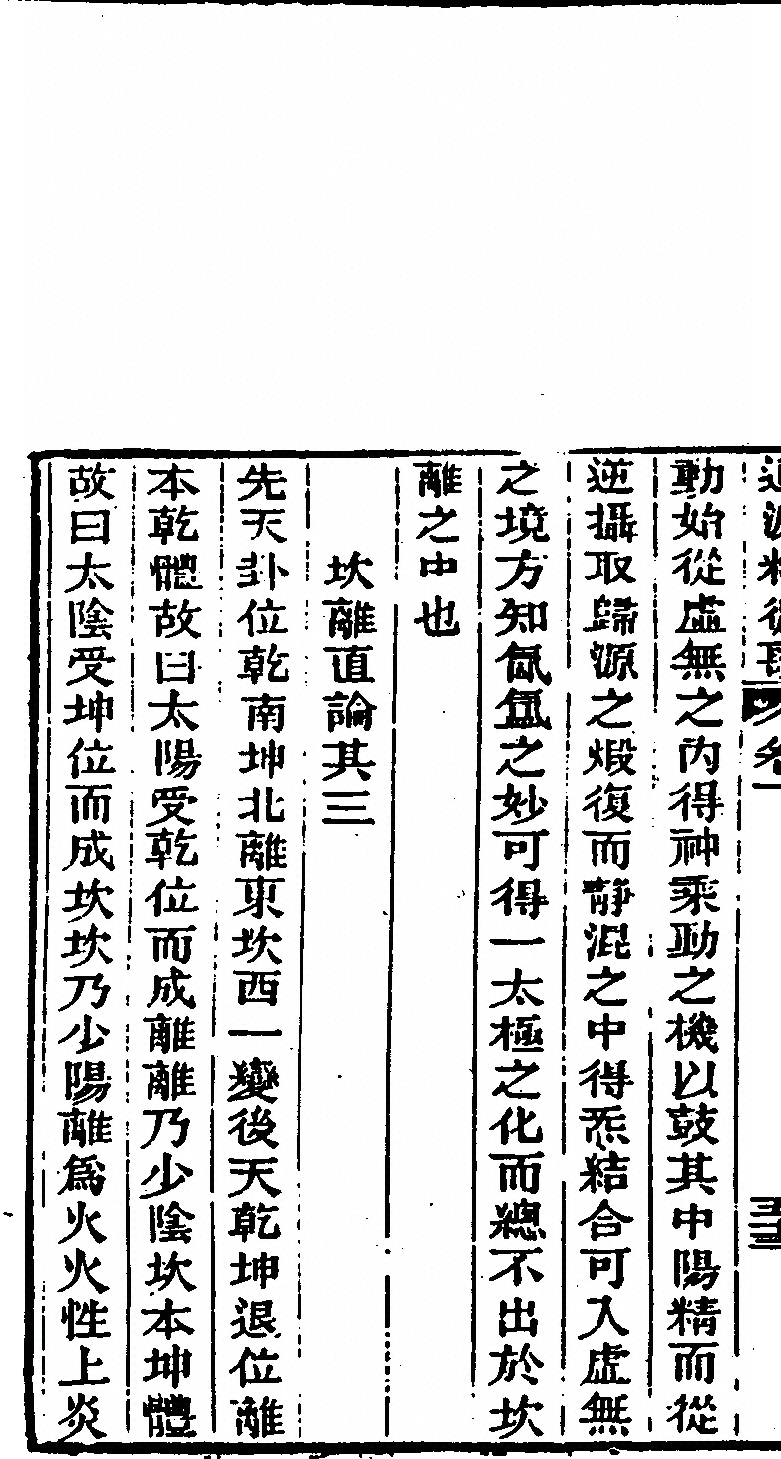 動始從虛無之內得神乘動之機以鼓其中陽精而從
逆攝取歸源之煅復而靜混之中得炁結合可入虛無
之境方知氤氳之妙可得一太極之化而總不出於坎
離之中也
坎離直論其三
先天卦位乾南坤北離東坎西一變後天乾坤退位離
本乾體故曰太陽受乾位而成離離乃少陰坎本坤體
故曰太陰受坤位而成坎坎乃少陽離爲火火性上炎